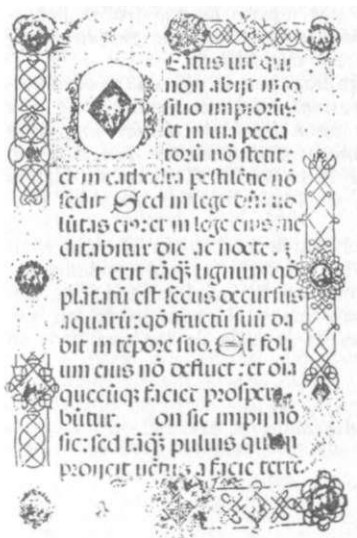 Eatus uir qui
non abijt in cō
silio impiorū:
et in uia pecca
torū nō stetit:
et in cathedra pestilētie nō
sedit Sed in lege dn̄i uo
lūtas eius: et in lege eius me
ditabitur die ac nocte.
t erit tāq̄ lignum qd̄
plātatū est secus decursus
aquarū: qd̄ fructū suū da
bit in tēpore suo. Et foli
um eius nō defluet: et oīa
quecūq̄ faciet prospera
būtur. on sic impij nō
sic: sed tāq̄ puluis quem
proijcit uētus a facie terre.